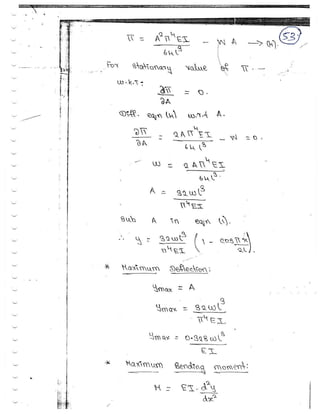 53
π = A²π⁴EI / 64l³ - WA → (4).
For stationary value of π. -
w.k.T:
∂π/∂A = 0.
Diff. eqn (4) w.r.t A.
∂π/∂A = 2Aπ⁴EI / 64l³ - W = 0.
W = 2Aπ⁴EI / 64l³.
A = 32wl³ / π⁴EI
Sub A in eqn (1).
∴ y = 32wl³ / π⁴EI (1 - cos πx / 2l).
* Maximum Deflection:
ymax = A
ymax = 32wl³ / π⁴EI
ymax = 0.328wl³ / EI
* Maximum Bending moment:
M = EI. d²y / dx²